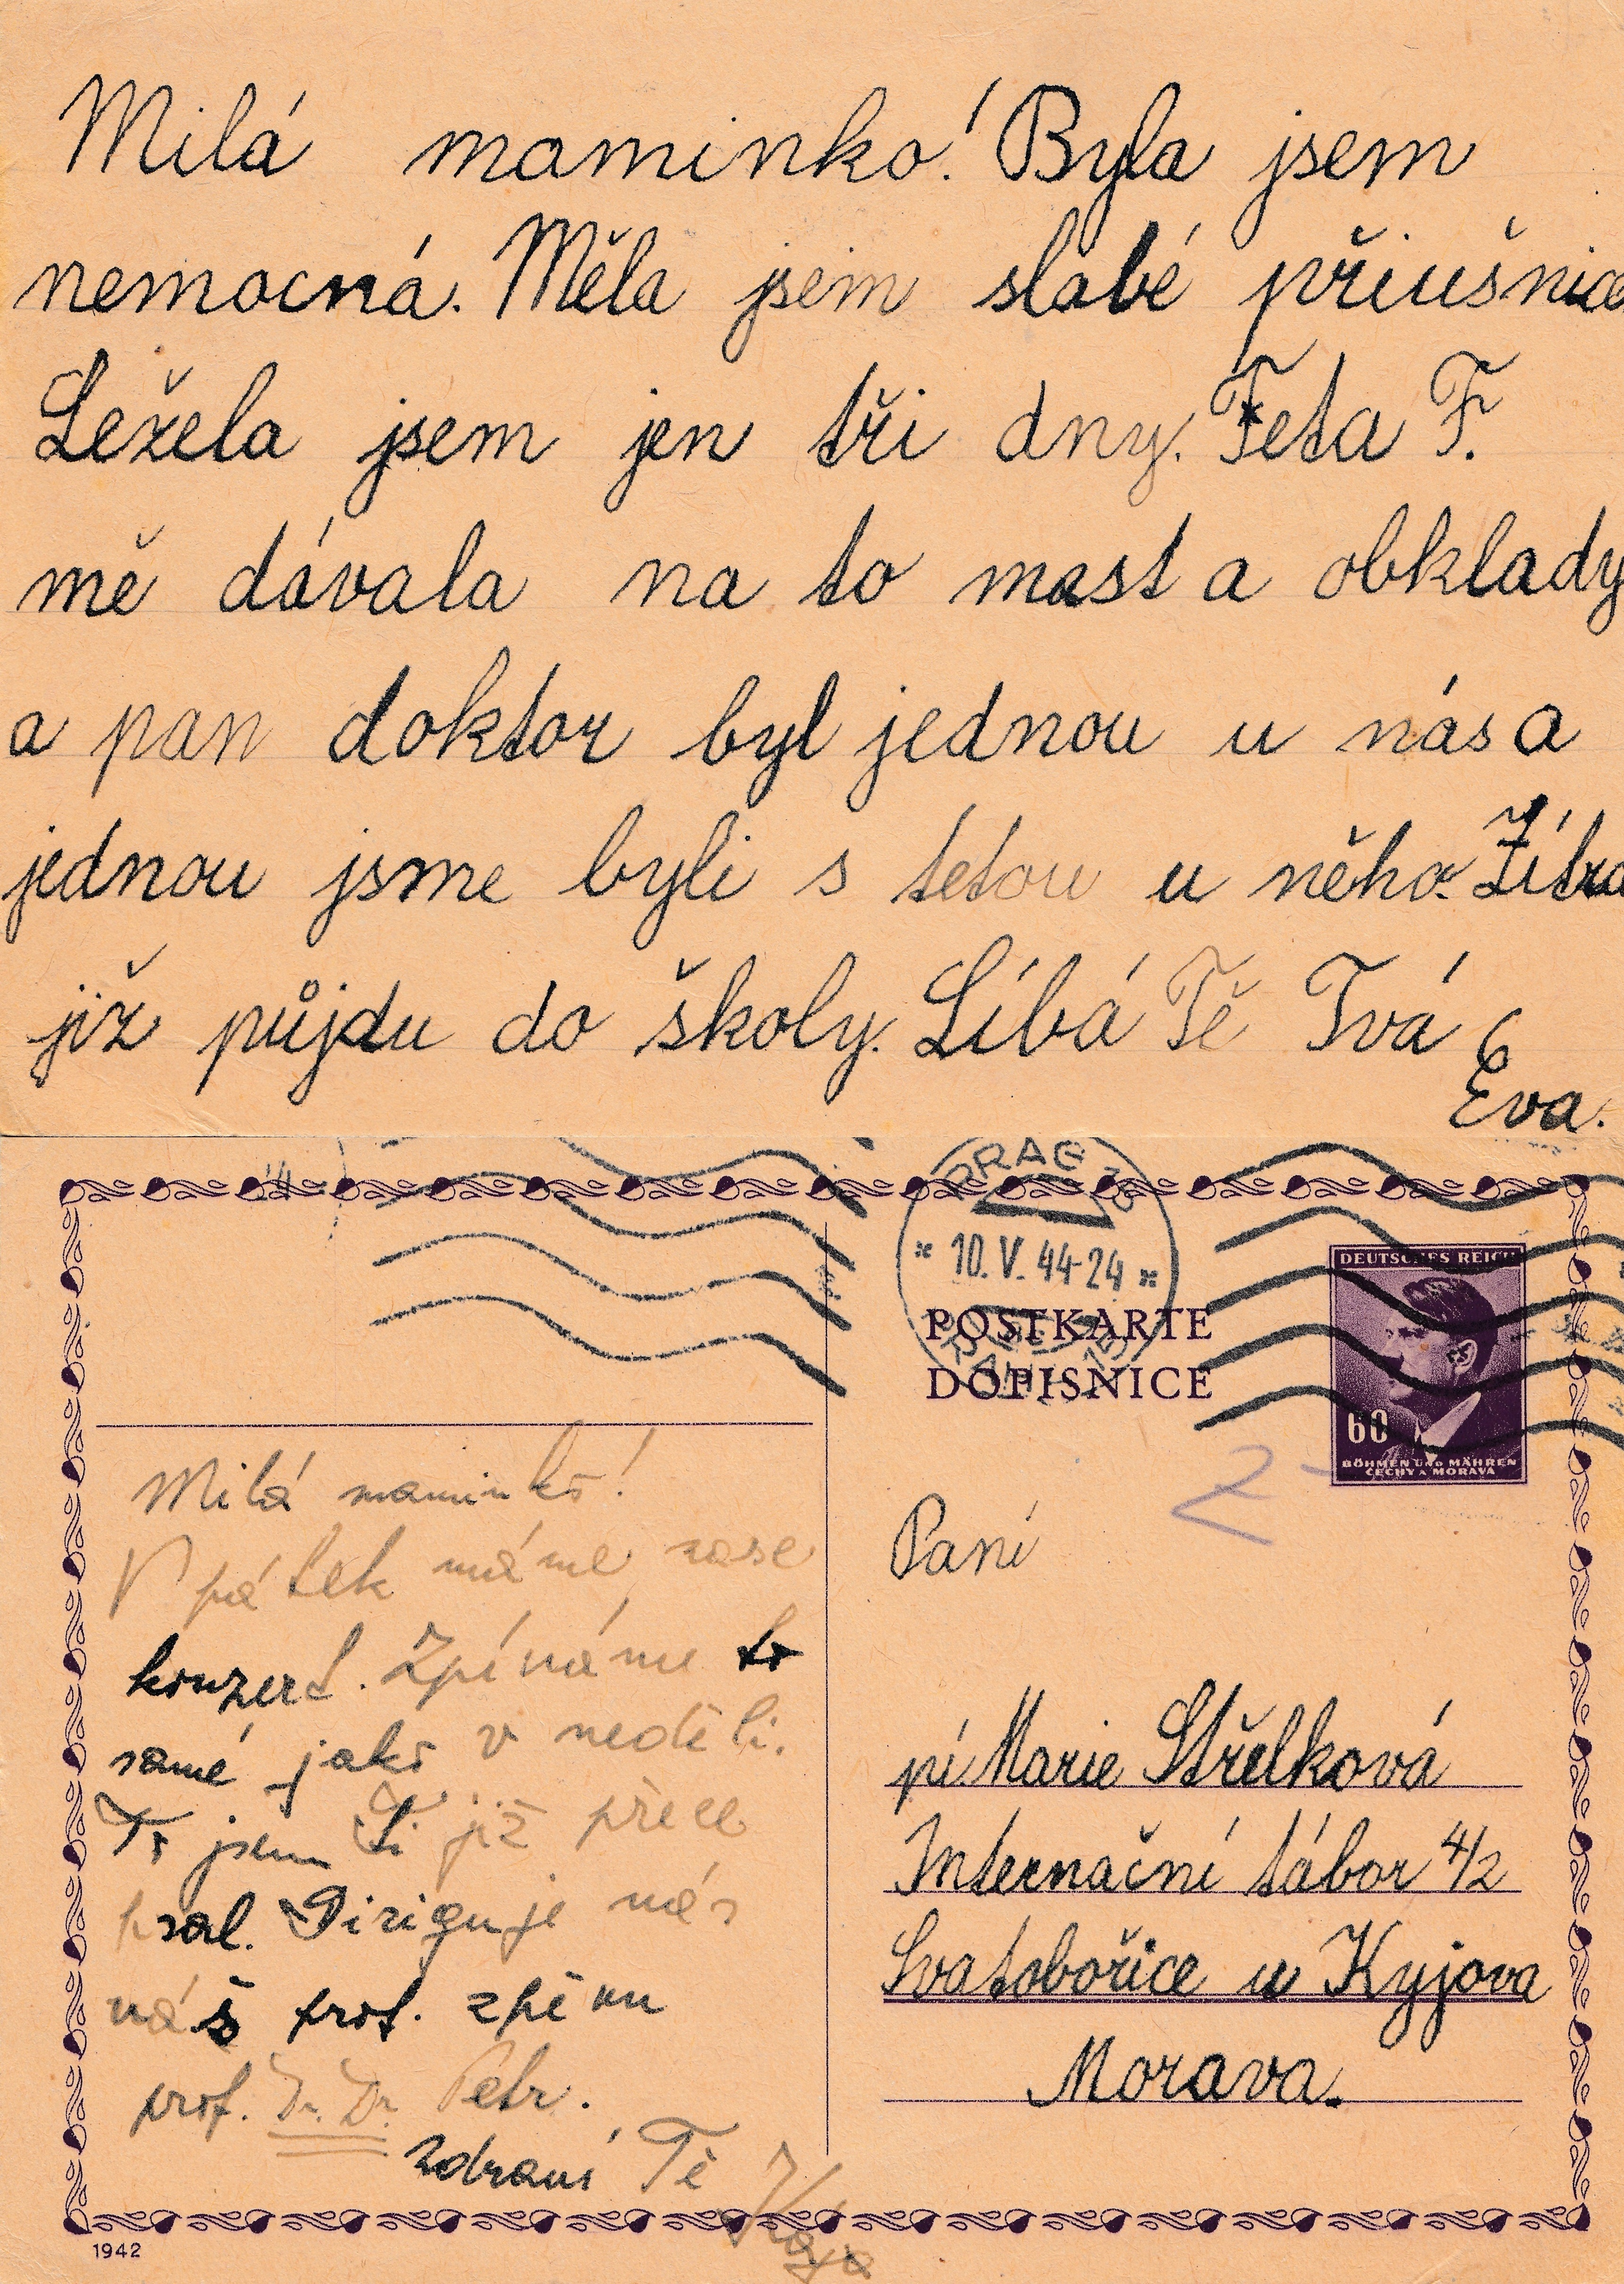 Milá maminko! Byla jsem
nemocná. Měla jsem slabé příušnice
Ležela jsem jen tři dny. Teta F.
mě dávala na to mast a obklady
a pan doktor byl jednou u nás a
jednou jsme byli s tetou u něho. Zítra
již půjdu do školy. Líbá Tě Tvá
Eva.
PRAG
* 10.V.44-24 *
POSTKARTE
DOPISNICE
DEUTSCHES REICH
60
BÖHMEN UND MÄHREN
ČECHY A MORAVA
Milá maminko!
V pátek máme zase
konzert. Zpíváme to
samé jako v neděli.
To jsem Ti již přece
psal. Diriguje nás
náš prof. zpěvu
prof. Dr. Dr. Petr.
Zdraví Tě
Paní
pí Marie Střelková
Internační tábor 4/2
Svatobořice u Kyjova
Morava.
1942